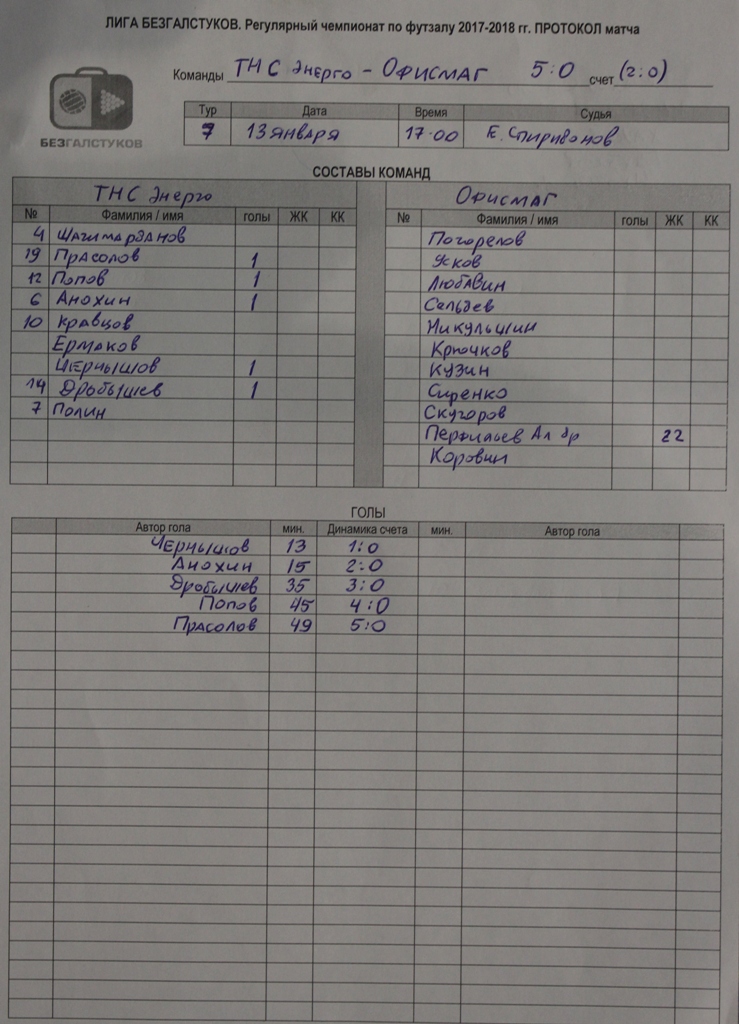 ЛИГА БЕЗГАЛСТУКОВ. Регулярный чемпионат по футзалу 2017-2018 гг. ПРОТОКОЛ матча
БЕЗГАЛСТУКОВ
Команды ТНС Энерго - Офисмаг 5:0 счет (2:0)
Тур Дата Время Судья
7 13 января 17-00 Е. Спиридонов
СОСТАВЫ КОМАНД
ТНС Энерго Офисмаг
№ Фамилия / имя голы ЖК КК № Фамилия / имя голы ЖК КК
4 Шагимарданов Погорелов
19 Прасолов 1 Усков
12 Попов 1 Любавин
6 Анохин 1 Сальцев
10 Кравцов Никульшин
Ермаков Крючков
Чернышов 1 Кузин
14 Дробышев 1 Сиренко
7 Полин Скугоров
Перфильев Ал др 22
Коровин
ГОЛЫ
Автор гола мин. Динамика счета мин. Автор гола
Чернышов 13 1:0
Анохин 15 2:0
Дробышев 35 3:0
Попов 45 4:0
Прасолов 49 5:0